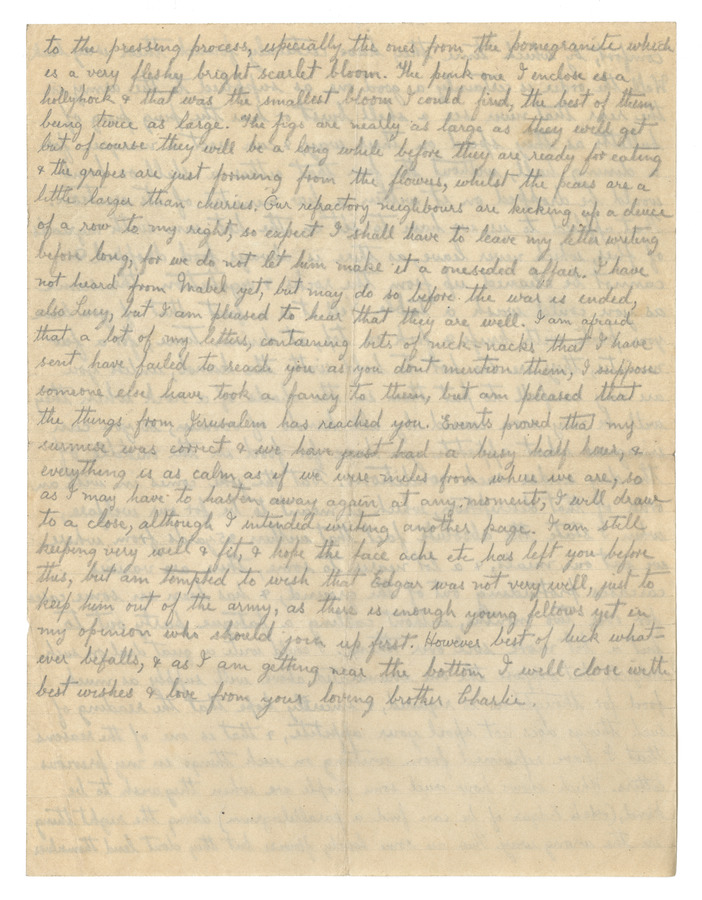 to the pressing process, especially the ones from the pomegranite which
is a very fleshy bright scarlet bloom. The pink one I enclose is a
hollyhock & that was the smallest bloom I could find, the best of them
being twice as large. The figs are nearly as large as they will get
but of course they will be a long while before they are ready for eating
& the grapes are just forming from the flowers, whilst the pears are a
little larger than cherries. Our refractory neighbours are kicking up a deuce
of a row to my right, so expect I shall have to leave my letter writing
before long, for we do not let him make it a onesided affair. I have
not heard from Mabel yet, but may do so before the war is ended,
also Lucy, but I am pleased to hear that they are well. I am afraid
that a lot of my letters, containing bits of nick-nacks that I have
sent have failed to reach you as you dont mention them, I suppose
someone else have took a fancy to them, but am pleased that
the things from Jerusalem has reached you. Events proved that my
surmise was correct & we have just had a busy half hour, &
everything is as calm as if we were miles from where we are, so
as I may have to hasten away again at any moment, I will draw
to a close, although I intended writing another page. I am still
keeping very well & fit, & hope the face ache etc has left you before
this, but am tempted to wish that Edgar was not very well, just to
keep him out of the army, as there is enough young fellows yet in
my opinion who should join up first. However best of luck what-
ever befalls, & as I am getting near the bottom I will close with
best wishes & love from your loving brother Charlie.